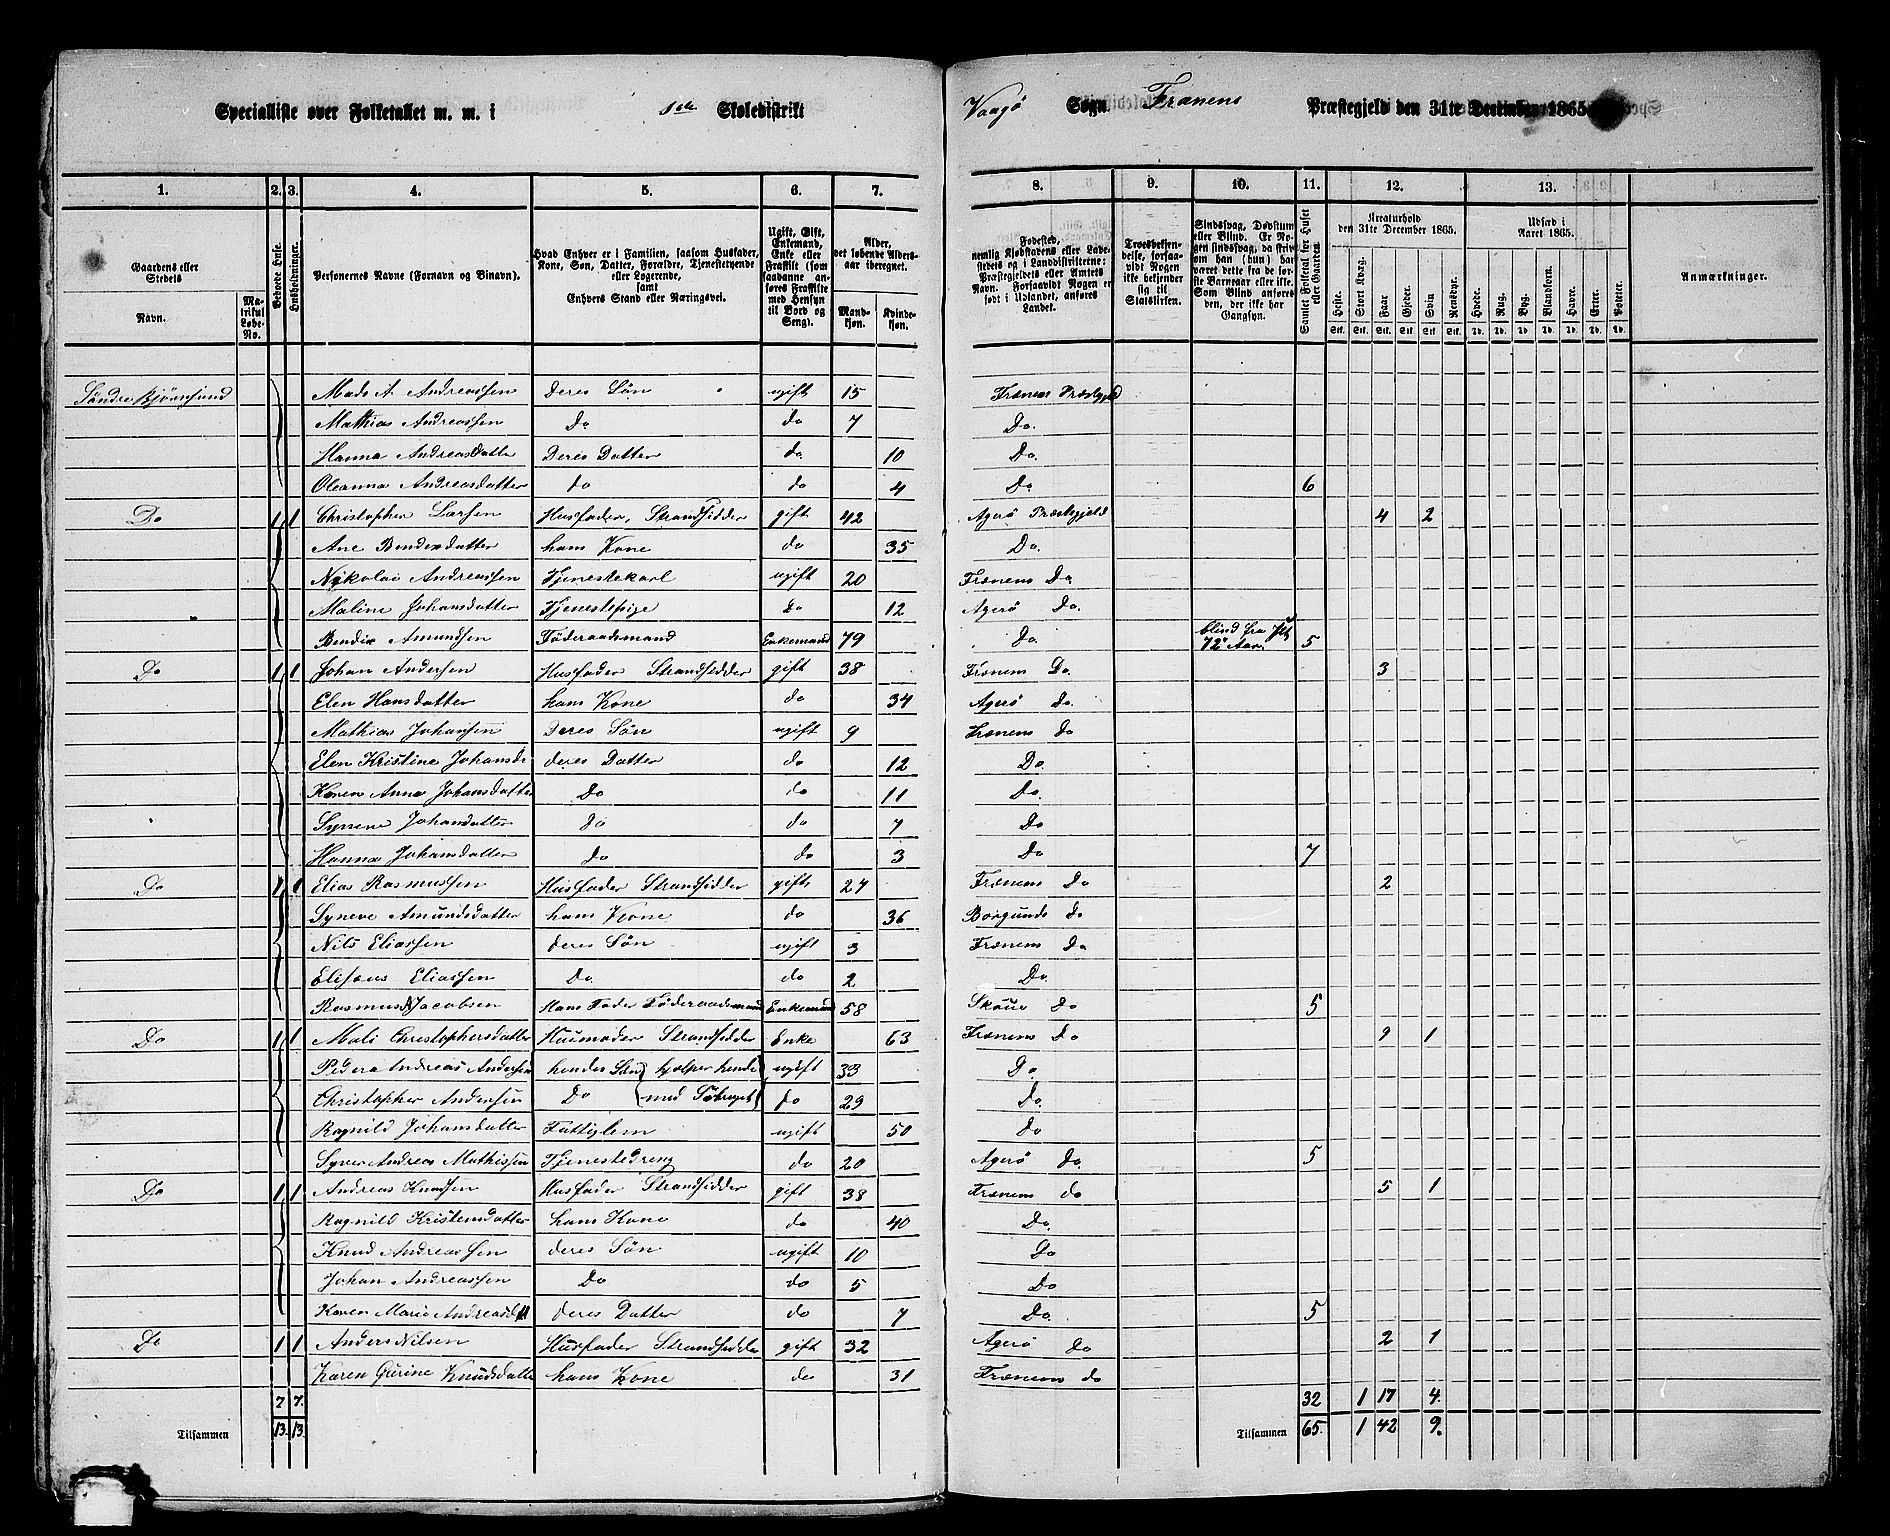 Specialliste over Folketallet m. m. i 1ste Skoledistrikt Vaagø Sogn Frænens Præstegjeld den 31te December 1865
1. 2. 3. 4. 5. 6. 7. 8. 9. 10. 11. 12. 13.
Gaardens eller Stedets
Navn.
Matrikul Løbe-No.
Beboede Huse.
Husholdninger.
Personernes Navne (Fornavn og Binavn).
Hvad Enhver er i Familien, saasom Husfader, Kone, Søn, Datter, Forældre, Tjenestetyende eller Logerende, samt Enhvers Stand eller Næringsvei.
Ugift, Gift, Enkemand, Enke eller Fraskilt (som saadanne anføres Fraskilte med Hensyn til Bord og Seng).
Alder, det løbende Aldersaar iberegnet.
Mandkjøn. Kvindekjøn.
Fødested, nemlig Kjøbstadens eller Ladestedets og i Landdistrikterne: Præstegjeldets eller Amtets Navn. Forsaavidt Nogen er født i Udlandet, anføres Landet.
Troesbekjendelse, forsaavidt Nogen ikke bekjender sig til Statskirken.
Sindssvag, Døvstum eller Blind. Er Nogen sindssvag, da skrives om han (hun) har været dette fra de første Barneaar eller ikke. Som Blind anføres den, der ikke har Gangsyn.
Samlet Folketal for Huset eller Gaarden.
Kreaturhold den 31te December 1865.
Heste. Stort Kvæg. Faar. Gjeder. Svin. Rensdyr.
Udsæd i Aaret 1865.
Hvede. Rug. Byg. Blandkorn. Havre. Erter. Poteter.
Anmærkninger.
Søndre Bjørnsund Mads A Andreassen Deres Søn ugift 15 Frænens Præstegjeld
Mathias Andreassen Do do 7 Do.
Hanna Andreasdatter Deres Datter do 10 Do.
Oleanna Andreasdatter do do 4 Do. 6
Do 1 1 Christopher Larsen Husfader, Strandsidder gift 42 Agerø Præstegjeld 4 2
Ane Bendixdatter hans Kone do 35 Do.
Nikolai Andreassen Tjenestekarl ugift 20 Frænens Do.
Maline Johansdatter Tjenestepige do 12 Agerø Do.
Bendix Amundsen Føderaadsmand Enkemand 79 Do. blind fra sit 72 Aar. 5
Do 1 1 Johan Andersen Husfader Strandsidder gift 38 Frænens Do. 3
Elen Hansdatter hans Kone do 34 Agerø do.
Mathias Johansen Deres Søn ugift 9 Frænens do
Elen Kristine Johansd: deres Datter do 12 Do.
Karen Anna Johansdatter Do do 11 Do.
Synene Johansdatter do do 7 Do
Hanna Johansdatter do do 3 Do 7
Do 1 1 Elias Rasmussen Husfader Strandsidder gift 27 Frænens Do 2
Syneve Amundsdatter hans Kone do 36 Borgunds do
Nils Eliassen deres Søn ugift 3 Frænens Do
Elisæus Eliassen Do. do 2 Do.
Rasmus Jacobsen Hans Fader Føderaadsmand Enkemand 58 Skoue do 5
Do 1 1 Mali Christophersdatter Huusmoder Strandsidder Enke 63 Frænens Do 9 1
Peder Andreas Andersen hendes Søn (hjælper hende ugift 33 Do.
Christopher Andersen Do (med Søbruget) do 29 Do.
Ragnild Johansdatter Fattiglem ugift 50 Do
Syver Andreas Mathissen Tjenestedreng do 20 Agerø Do. 5
Do 1 1 Andreas Knudsen Husfader Strandsidder gift 38 Frænens do 5 1
Ragnild Kristensdatter hans Kone do 40 Do.
Knud Andreassen deres Søn ugift 10 Do
Johan Andreassen Do do 5 Do
Karen Marie Andreasdtt deres Datter do 7 Do. 5
Do 1 1 Anders Nilsen Husfader Strandsidder gift 32 Agerø do 2 1
Karen Gurine Knudsdatter hans Kone do 31 Frænens do
7 7. 32 1 17 4.
Tilsammen 13. 13. Tilsammen 65. 1 42 9.